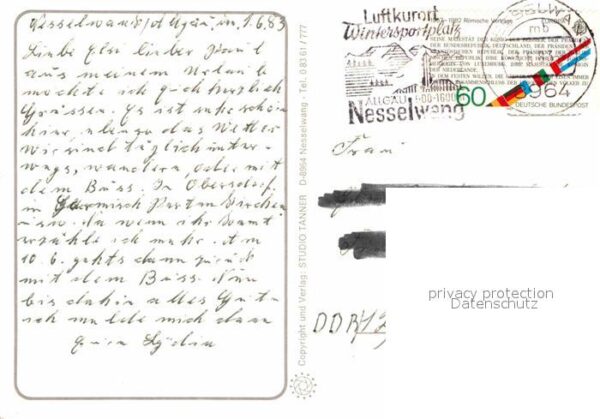 Nesselwang/Allgäu, 1.6.83
Liebe Elli lieber Paul
aus meinem Urlaub
möchte ich euch herzlich
Grüssen. Es ist sehr schön
hier, ebenso das Wetter
wir sind täglich unter-
wegs, wandern, oder mit
dem Buss. In Obersdorf,
in Garmisch Parten Kirchen
usw. Na wenn ihr kommt
erzähle ich mehr. Am
10.6. gehts dann zurück
mit dem Buss. Nun
bis dahin alles Gute
ich melde mich dann
eure Lydia
Copyright und Verlag: STUDIO TANNER D-8964 Nesselwang · Tel. 0 83 61 / 777
Luftkurort
Wintersportplatz
ALLGÄU
Nesselwang
mb
8964
1957-1982 Römische Verträge
60
DEUTSCHE BUNDESPOST
Frau
DDR/
privacy protection
Datenschutz